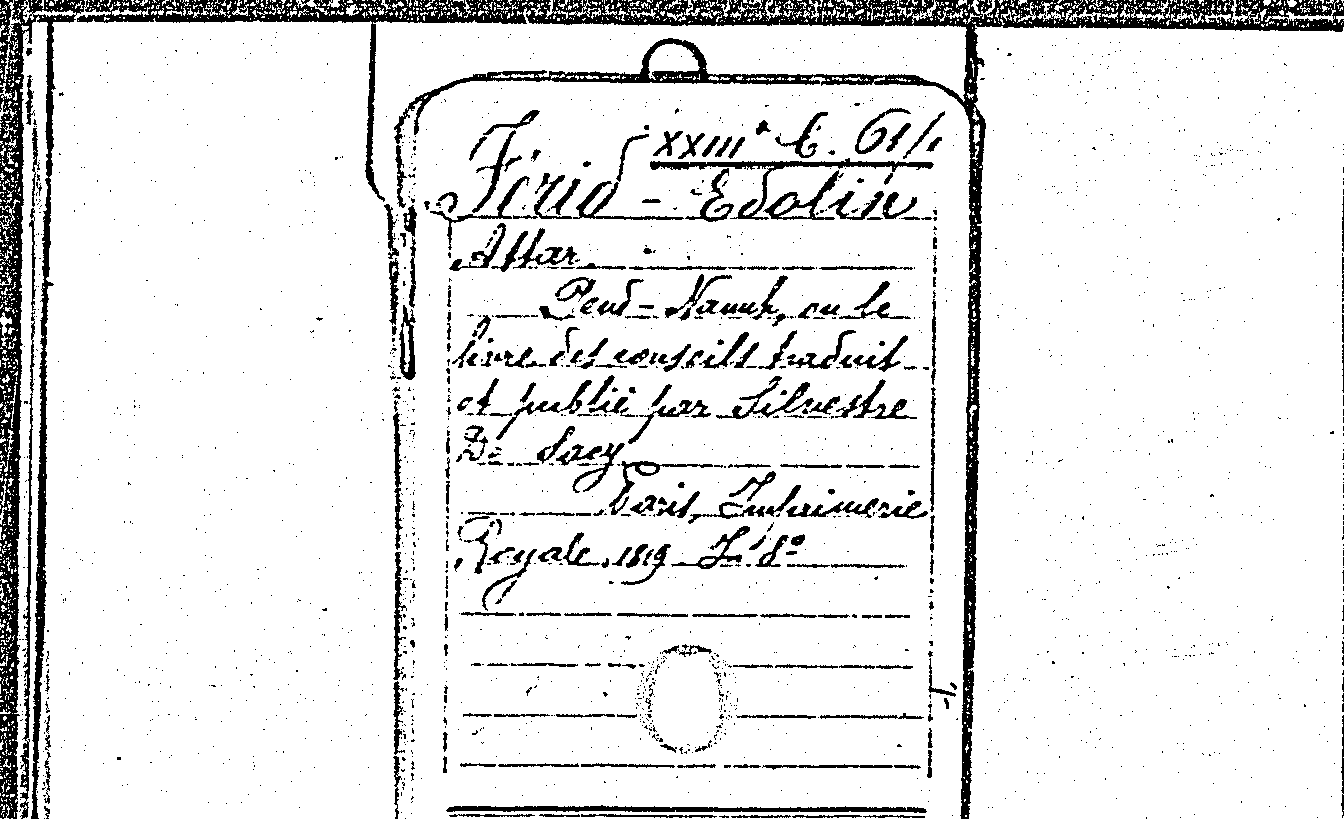 XXIIIª C. 61/1
Férid - Edolin
Attar.
Pend-Nameh, ou le
livre des conseils traduit
et publié par Silvestre
De Sacy
Paris, Imprimerie
Royale, 1819 I. 8º